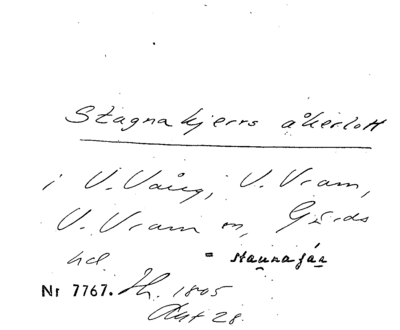 Stagnakjerrs åkerlott
i V. Vång, V. Vram,
V. Vram sn, Gärds
hd.
Nr 7767. Jh. 1805
Akt 28.